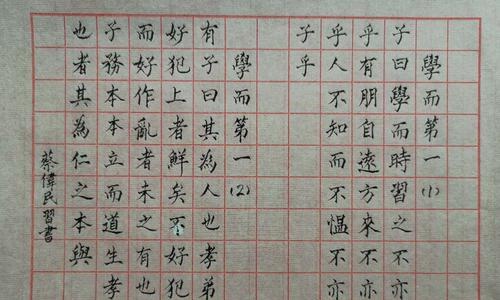 學而第一(1)
子曰學而時習之不亦
乎有朋自遠方來不亦
乎人不知而不慍不亦
子乎
學而第一(2)
有子曰其為人也孝弟
好犯上者鮮矣不好犯
而好作亂者未之有也
子務本本立而道生孝
也者其為仁之本與
蔡偉民習書